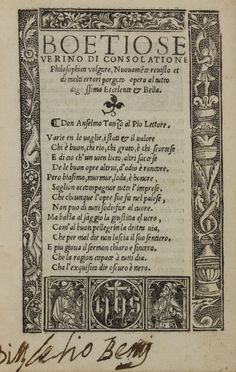 BOETIO SE
VERINO DI CONSOLATIONE
Philosophica volgare, Nuouamēte reuisto et
di molti errori porgato opera al tutto
dig ssima Eccelente & Bella.
Don Anselmo Tanzo al Pio Lettore.
Varie en le uoglie, i stati & il ualore
Chi è buon, chi rio, chi grato, è chi scortese
E di ciò ch'un uien lieto, altri
De le buon opre altrui, d'odio è rancore.
Pero biasimo, murmur, loda, è honore
Soglion accompagnar tutte l'imprese.
Che chiunque l'apre sue fa nel palese,
Non puo di tutti sodisfar al cuore.
Ma basta al saggio la giustitia el uero,
Com'al buon pellegrin la dritta uia,
Che per mal dir non lascia il suo sentiero.
E piu gioua il sermon chiaro e sincero,
Che la ragion expace à tutti dia,
Che l'exquisito dir oscuro è nero.
ihs